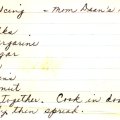 Icing - Mom Dean's
lks
argarine
gar
nut
Together. Cook in dou
then spread.